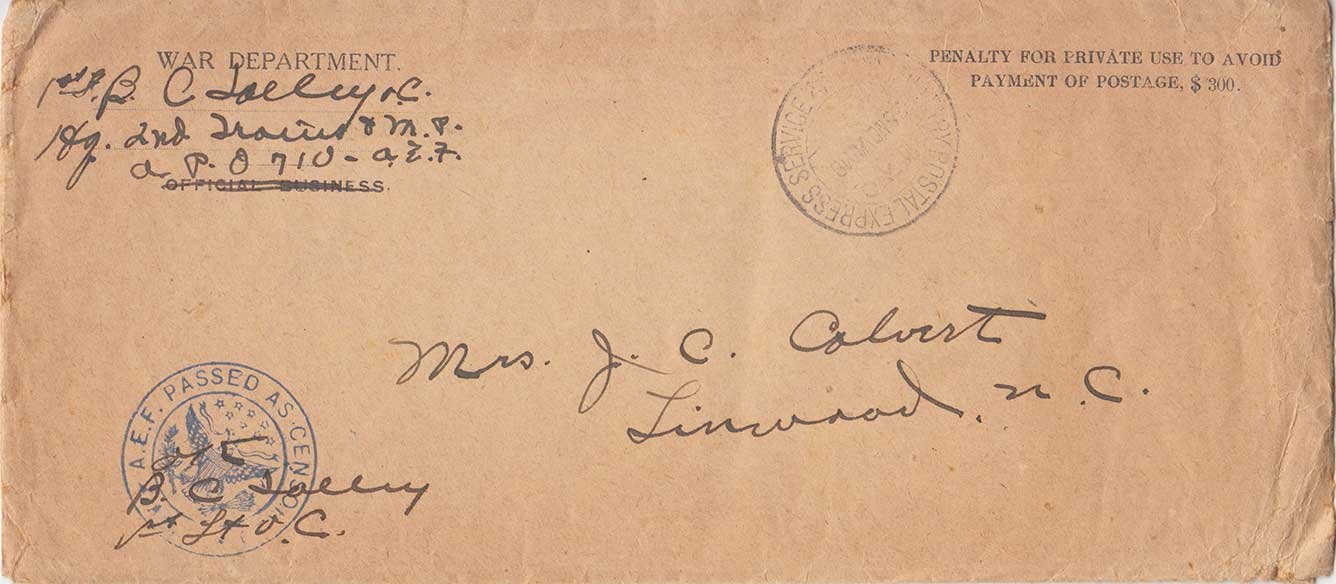 WAR DEPARTMENT.
1st Lt. B. C. Tolley V.C.
Hq. 2nd Trains & M.P.
A. P. O 710 - A.E.F.
OFFICIAL BUSINESS.
PENALTY FOR PRIVATE USE TO AVOID
PAYMENT OF POSTAGE, $ 300.
POSTAL EXPRESS SERVICE
Mrs. J. C. Calvert
Linwood, N. C.
A.E.F. PASSED AS CENSORED
O/C
B. C Tolley
1st Lt V. C.